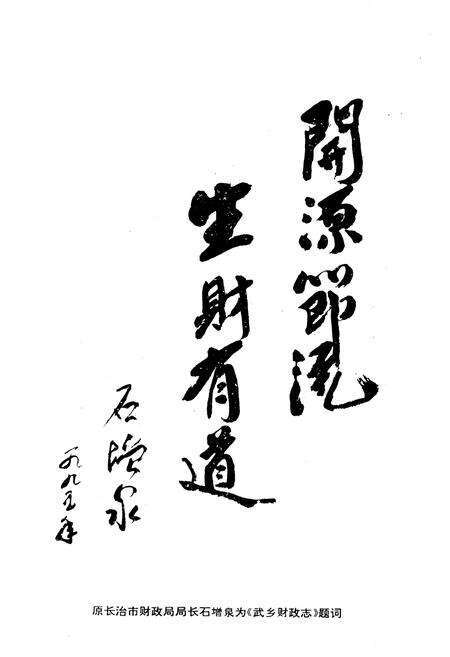 開源節流
生財有道
石增泉
一九九五年
原长治市财政局局长石增泉为《武乡财政志》题词